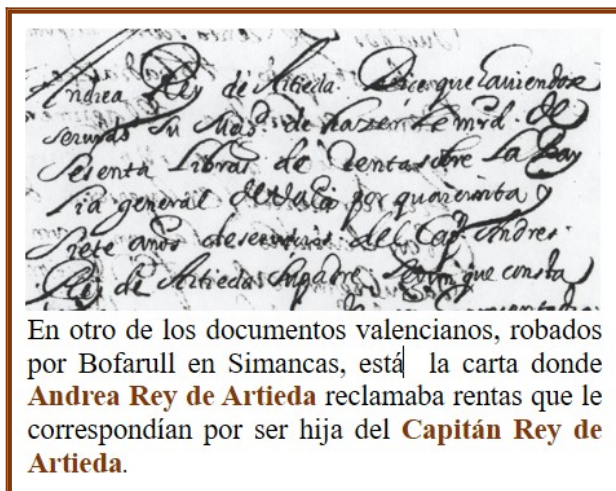 Andrea Rey de Artieda. Dice que haviendose
servido Su Magd. de hazerle mrd. de
sesenta Libras de Renta sobre La Bay
lia general de Vala. por quarenta y
siete años de servicios del Capn. Andres
Rey de Artieda su padre, segun que consta
En otro de los documentos valencianos, robados
por Bofarull en Simancas, está la carta donde
Andrea Rey de Artieda reclamaba rentas que le
correspondían por ser hija del Capitán Rey de
Artieda.